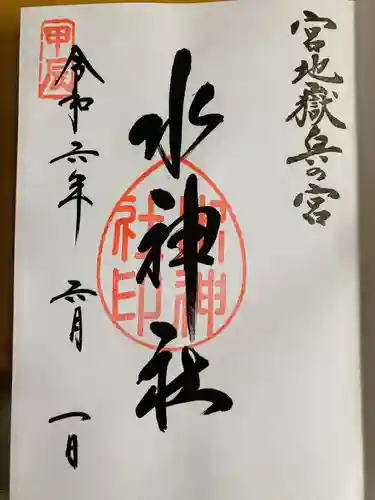 宮地嶽兵の宮
水神社
水神社印
甲辰
令和六年 六月 一日